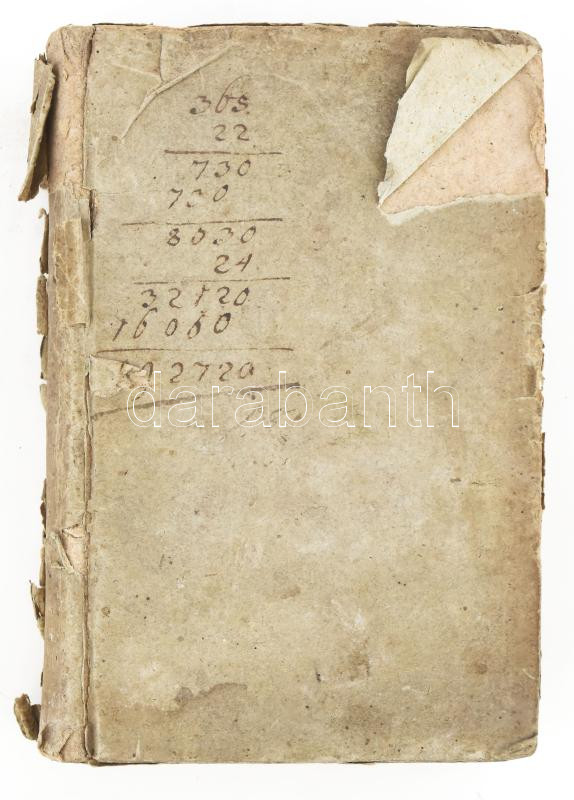 365.
22
730
730
8030
24
32120
16060
192720
darabanth